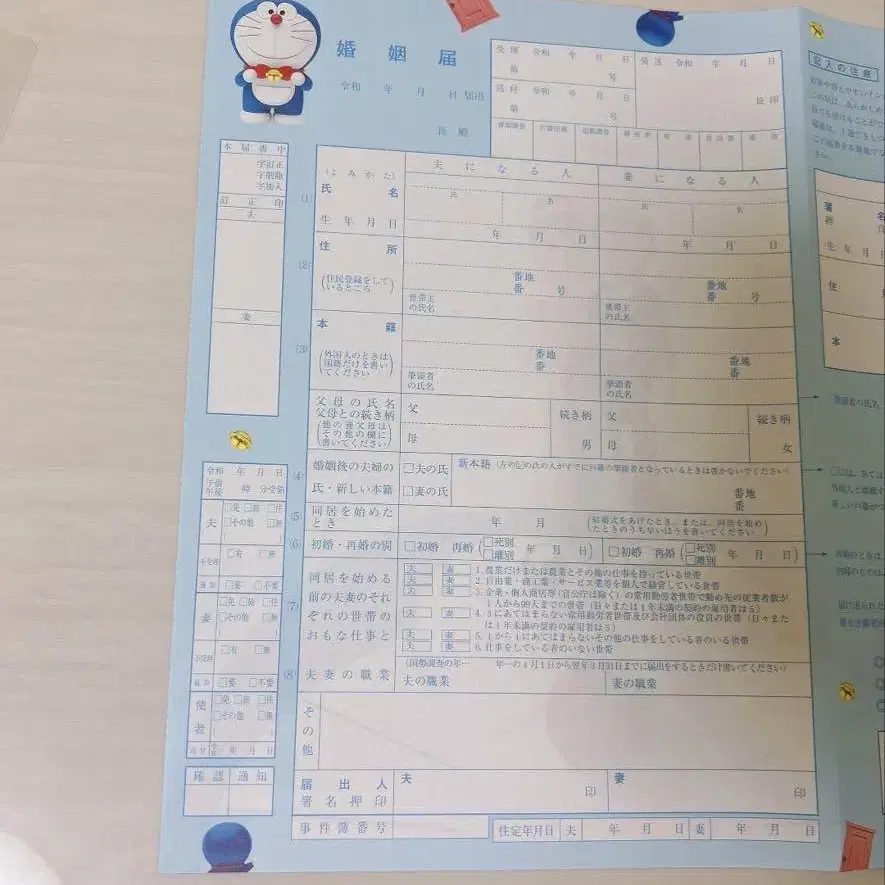 婚姻届
令和 年 月 日 届出
長 殿
受理 令和 年 月 日
第 号
送付 令和 年 月 日
第 号
発送 令和 年 月 日
長印
書類調査
戸籍記載
記載調査
附票
住民票
通知
記入の注意
本届書中
字訂正
字削除
字加入
訂正印
夫
妻
夫になる人
妻になる人
(1)
(よみかた)
氏名
氏 名
氏 名
生年月日
年 月 日
年 月 日
(2)
住所
(住民登録をしているところ)
番地
番 号
番地
番 号
世帯主の氏名
世帯主の氏名
(3)
本籍
(外国人のときは国籍だけを書いてください)
番地
番
番地
番
筆頭者の氏名
筆頭者の氏名
父母の氏名
父母との続き柄
(他の養父母はその他の欄に書いてください)
父
母
続き柄
男
父
母
続き柄
女
(4)
婚姻後の夫婦の氏・新しい本籍
□夫の氏
□妻の氏
新本籍(左の☑の氏の人がすでに戸籍の筆頭者となっているときは書かないでください)
番地
番
(5)
同居を始めたとき
年 月
(結婚式をあげたとき、または、同居を始めたときのうち早いほうを書いてください)
(6)
初婚・再婚の別
□初婚 再婚(□死別 □離別 年 月 日)
□初婚 再婚(□死別 □離別 年 月 日)
(7)
同居を始める
前の夫妻のそれ
ぞれの世帯の
おもな仕事と
夫 妻 1. 農業だけまたは農業とその他の仕事を持っている世帯
夫 妻 2. 自由業・商工業・サービス業等を個人で経営している世帯
夫 妻 3. 企業・個人商店等(官公庁は除く)の常用勤労者世帯で勤め先の従業者数が
1人から99人までの世帯(日々または1年未満の契約の雇用者は5)
夫 妻 4. 3にあてはまらない常用勤労者世帯及び会社団体の役員の世帯(日々また
は1年未満の契約の雇用者は5)
夫 妻 5. 1から4にあてはまらないその他の仕事をしている者のいる世帯
夫 妻 6. 仕事をしている者のいない世帯
(8)
夫妻の職業
(国勢調査の年… 年…の4月1日から翌年3月31日までに届出をするときだけ書いてください)
夫の職業
妻の職業
その他
届出人
署名押印
夫 印
妻 印
事件簿番号
住定年月日
夫 年 月 日
妻 年 月 日
令和 年 月 日
午前
午後 時 分受領
夫
□免 □旅 □住
□その他 □無
不受理
□有 □無
通知
□要 □不要
妻
□免 □旅 □住
□その他 □無
不受理
□有 □無
通知
□要 □不要
使者
□免 □旅 □住
□その他 □無
確認
通知
署名
印
生年月日
住
本
筆頭者の氏名